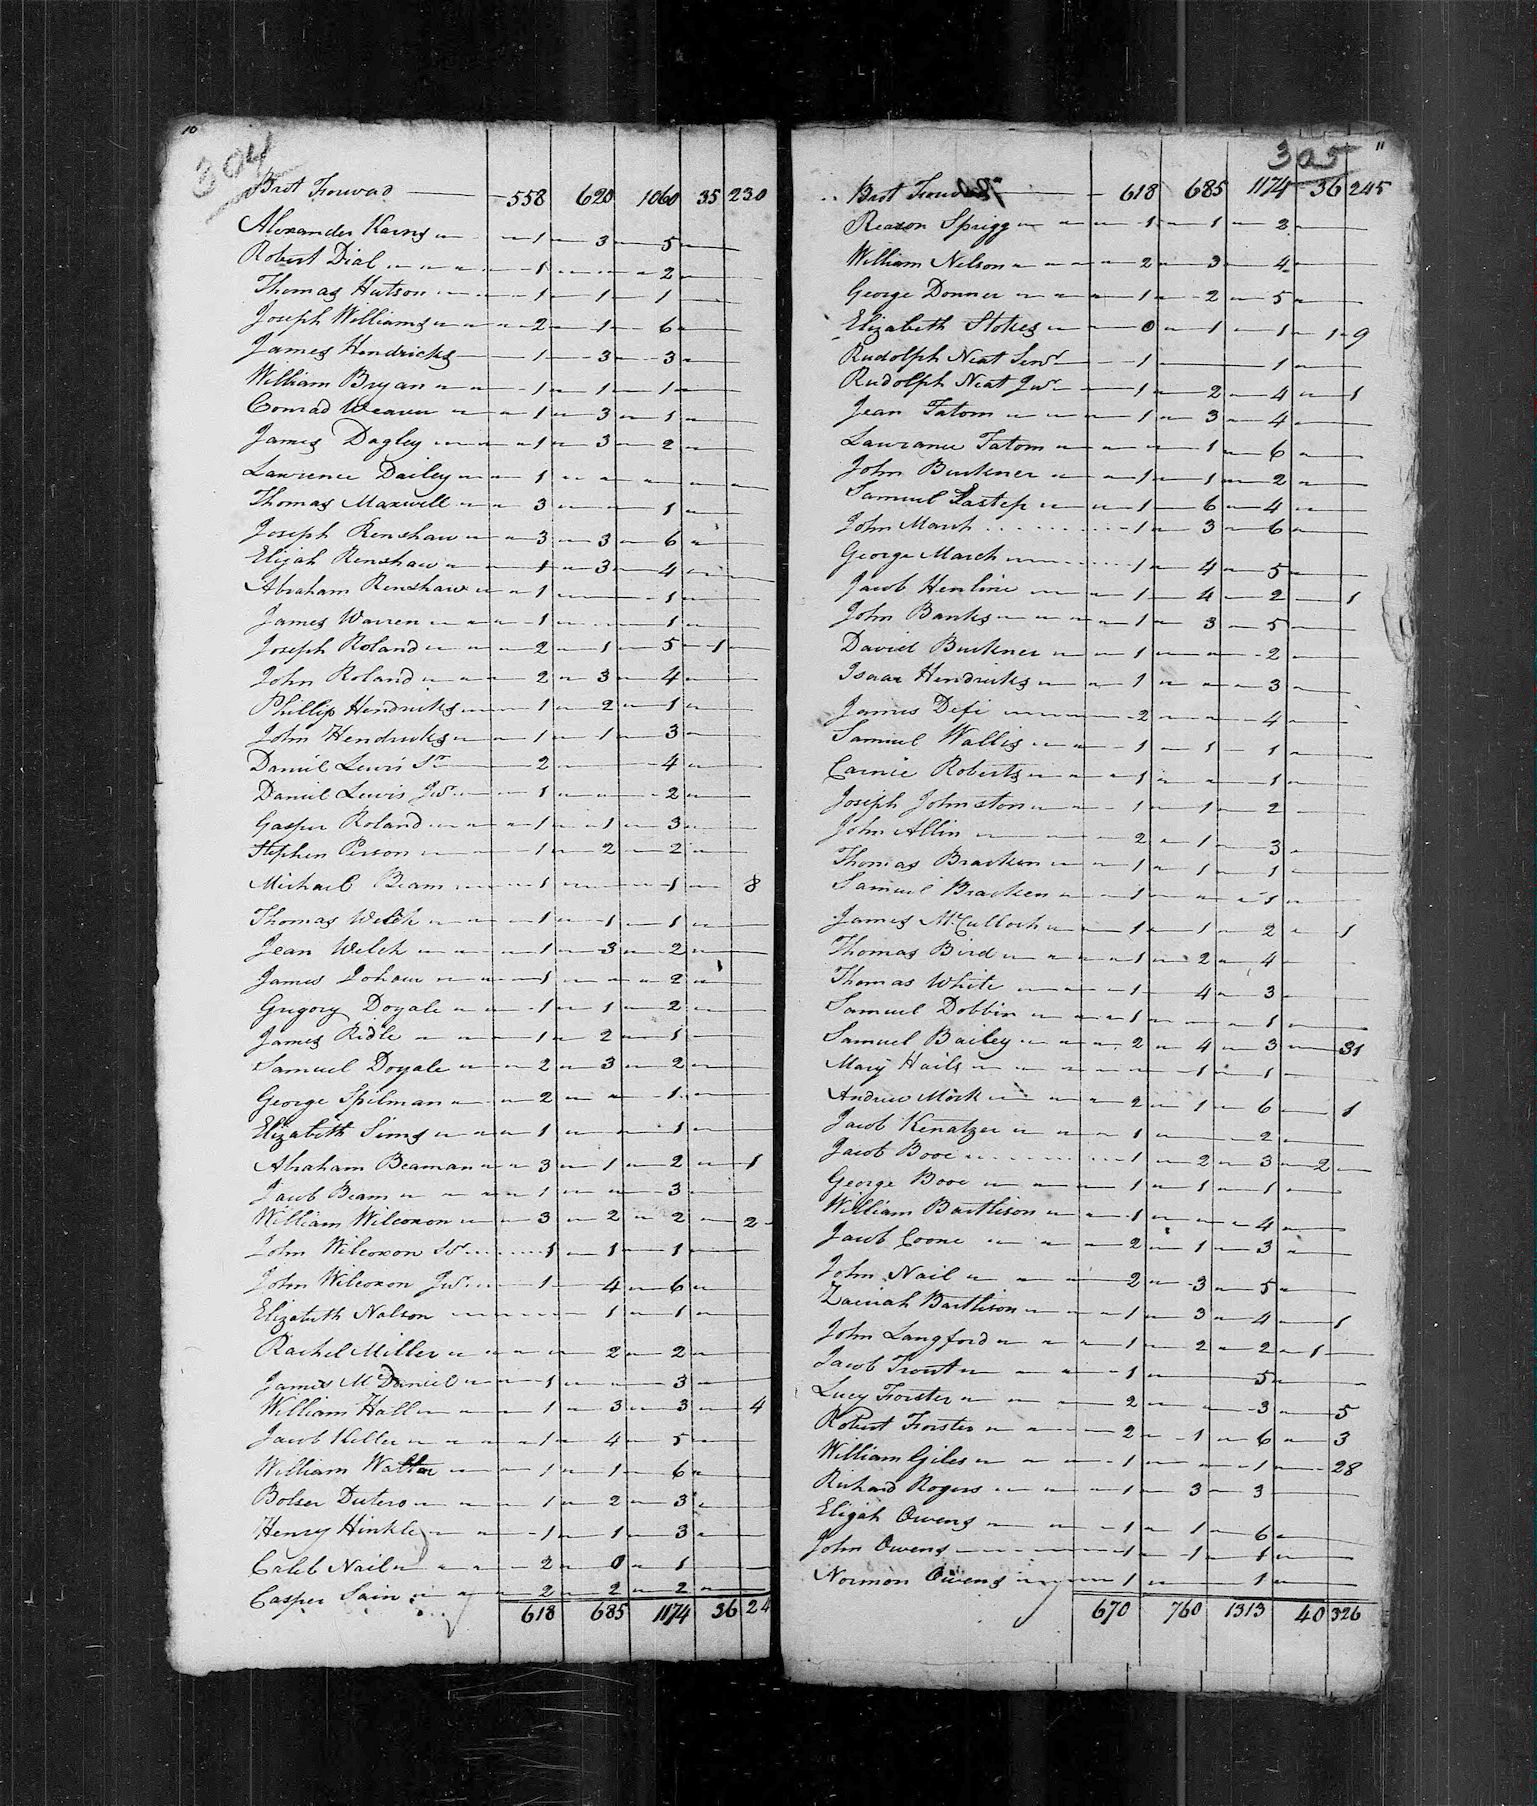 10
304
Brot Forward 558 620 1060 35 230
Alexander Karns 1 3 5
Robert Dial 1 2
Thomas Hutson 1 1 1
Joseph Williams 2 1 6
James Hendricks 1 3 3
William Bryan 1 1 1
Conrad Weaver 1 3 1
James Dagley 1 3 2
Lawrence Dailey 1
Thomas Maxwell 3 1
Joseph Renshaw 3 3 6
Elijah Renshaw 1 3 4
Abraham Renshaw 1 1
James Warren 1 1
Joseph Roland 2 1 5 1
John Roland 2 3 4
Phillip Hendricks 1 2 1
John Hendricks 1 1 3
Daniel Lewis Sr 2 4
Daniel Lewis Jur 1 2
Gasper Roland 1 1 3
Stephen Person 1 2 2
Michael Beam 1 1 8
Thomas Welch 1 1 1
Jean Welch 1 3 2
James 1 2
Gregory Doyale 1 1 2
James Ridle 1 2 1
Samuel Doyale 2 3 2
George Spilman 2 1
Elizabeth Sims 1 1
Abraham Beaman 3 1 2 1
Jacob Beam 1 3
William Wilcoxon 3 2 2 2
John Wilcoxon Sr 1 1 1
John Wilcoxon Jur 1 4 6
Elizabeth Nalson 1 1
Rachel Miller 2 2
James McDaniel 1 3
William Hall 1 3 3 4
Jacob Keller 1 4 5
William Walter 1 1 6
Bolser Dutero 1 2 3
Henry Hinkle 1 1 3
Caleb Nail 2 0 1
Casper Sain 2 2 2
618 685 1174 36 24
11
305
Brot Forward 618 685 1174 36 245
Reaxon Sprigg 1 1 2
William Nelson 2 3 4
George Donner 1 2 5
Elizabeth Stokes 0 1 1 1 9
Rudolph Neat Senr 1 1
Rudolph Neat Jur 1 2 4 1
Jean Tatom 1 3 4
Lawrance Tatom 1 6
John Buckner 1 1 2
Samuel Lastep 1 6 4
John March 1 3 6
George March 1 4 5
Jacob Henline 1 4 2 1
John Banks 1 3 5
David Buckner 1 2
Isaac Hendricks 1 3
James Defi 2 4
Samuel Wallis 1 1 1
Carnie Roberts 1 1
Joseph Johnston 1 1 2
John Allin 2 1 3
Thomas Bracken 1 1 1
Samuel Bracken 1 1
James McCulloch 1 1 2 1
Thomas Bird 1 2 4
Thomas White 1 4 3
Samuel Dobbin 1 1
Samuel Bailey 2 4 3 31
Mary Hails 1 1
Andrew Mock 2 1 6 1
Jacob Kenatzer 1 2
Jacob Booe 1 2 3 2
George Booe 1 1 1
William Bartlison 1 4
Jacob Coone 2 1 3
John Nail 2 3 5
Zairiah Bartlison 1 3 4 1
John Langford 1 2 2 1
Jacob Trout 1 5
Lucy Forster 2 3 5
Robert Forster 2 1 6 3
William Giles 1 1 28
Richard Rogers 1 3 3
Elijah Owens 1 1 6
John Owens 1 1 1
Normon Owens 1 1
670 760 1313 40 326